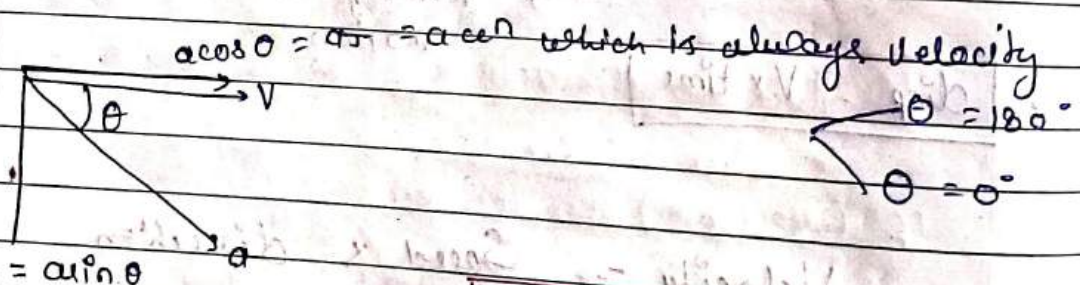 acosθ = = accⁿ which is always velocity
V
θ
θ = 180°
θ = 0°
a
= asin θ